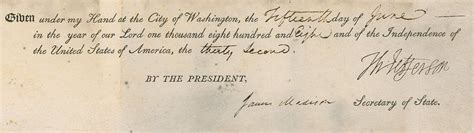 Given under my Hand at the City of Washington, the Fifteenth day of June
in the year of our Lord one thousand eight hundred and Eight and of the Independence of
the United States of America, the thirty Second.
Th Jefferson
BY THE PRESIDENT,
James Madison Secretary of State.